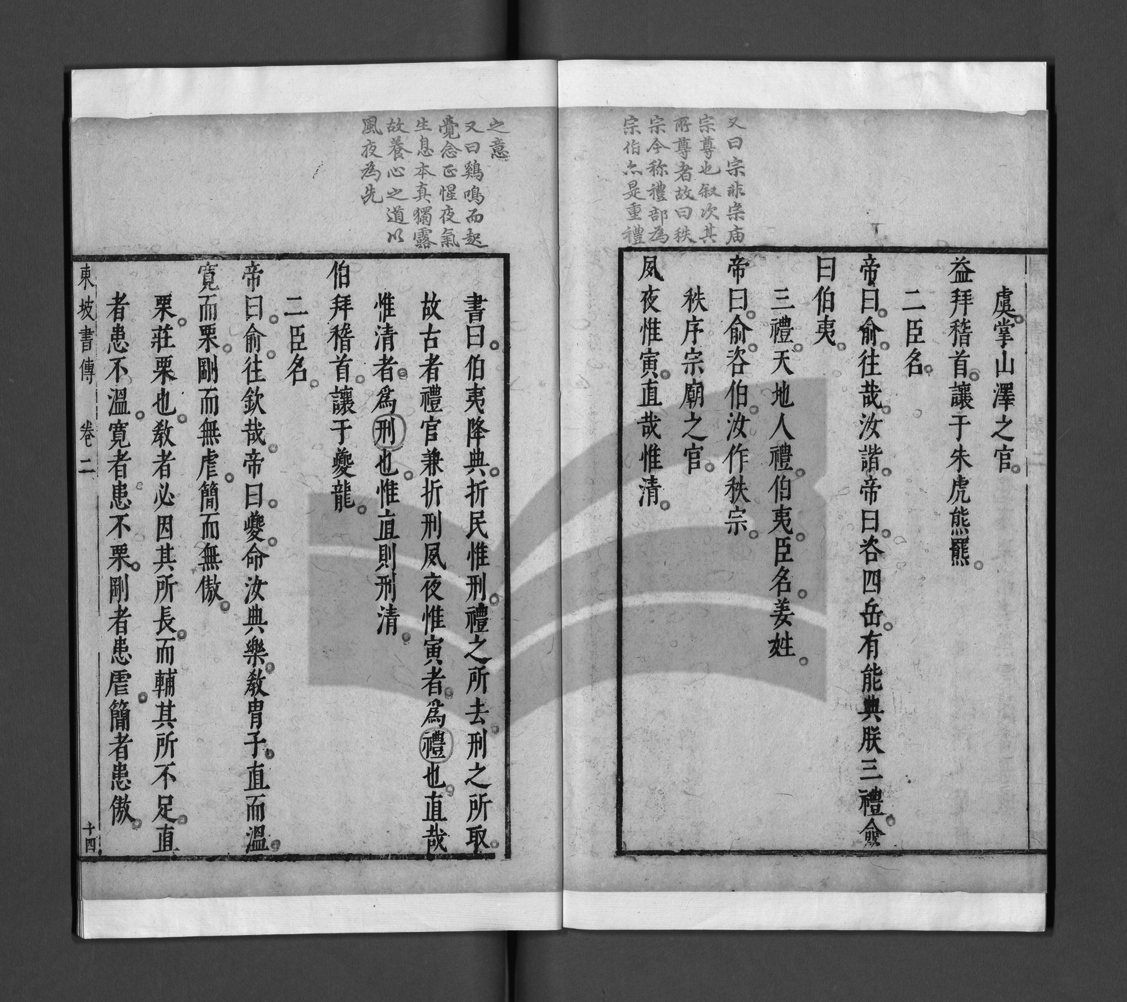 又曰宗非宗庙
宗尊也叙次其
所尊者故曰秩
宗今称禮部為
宗伯亦是重禮
之意
又曰鷄鳴而起
覺念正惺夜氣
生息本真獨露
故養心之道以
夙夜為先
虞掌山澤之官
益拜稽首讓于朱虎熊羆
二臣名
帝曰俞往哉汝諧帝曰咨四岳有能典朕三禮僉
曰伯夷
三禮天地人禮伯夷臣名姜姓
帝曰俞咨伯汝作秩宗
秩序宗廟之官
夙夜惟寅直哉惟清
書曰伯夷降典折民惟刑禮之所去刑之所取
故古者禮官兼折刑夙夜惟寅者為禮也直哉
惟清者為刑也惟直則刑清
伯拜稽首讓于夔龍
二臣名
帝曰俞往欽哉帝曰夔命汝典樂教胄子直而溫
寬而栗剛而無虐簡而無傲
栗莊栗也教者必因其所長而輔其所不足直
者患不溫寬者患不栗剛者患虐簡者患傲
東坡書傳 卷二 十四